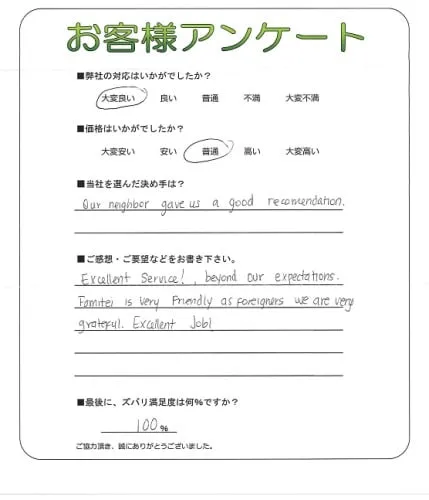 お客様アンケート
■弊社の対応はいかがでしたか？
大変良い 良い 普通 不満 大変不満
■価格はいかがでしたか？
大変安い 安い 普通 高い 大変高い
■当社を選んだ決め手は？
Our neighbor gave us a good recomendation.
■ご感想・ご要望などをお書き下さい。
Excellent Service!, beyond our expectations.
Famitei is very Friendly as foreigners we are very
grateful. Excellent Job!
■最後に、ズバリ満足度は何％ですか？
100%
ご協力頂き、誠にありがとうございました。